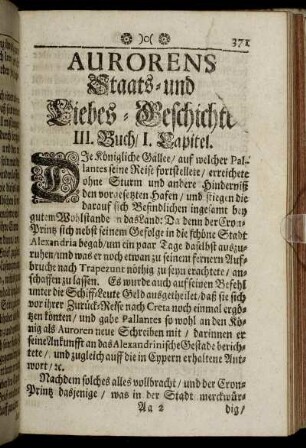 371
AURORENS
Staats- und
Liebes-Geschichte
III. Buch / I. Capitel.
DIe Königliche Gallee / auf welcher Pal-
lantes seine Reise fortstellete / erreichete
ohne Sturm und andere Hinderniß
den vorgesetzten Hafen / und stiegen die
darauf sich Befindlichen ingesamt bey
gutem Wohlstande in das Land: Da denn der Cron-
Printz sich nebst seinem Gefolge in die schöne Stadt
Alexandria begab / um ein paar Tage daselbst auszu-
ruhen / und was er noch etwan zu seinem fernern Auf-
bruche nach Trapezunt nöthig zu seyn erachtete / an-
schaffen zu lassen. Es wurde auch auf seinen Befehl
unter die Schiff-Leute Geld ausgetheilet / daß sie sich
vor ihrer Zurück-Reise nach Creta noch einmal ergö-
tzen könten / und gabe Pallantes so wohl an den Kö-
nig als Auroren treue Schreiben mit / darinnen er
seine Ankunfft an das Alexandrinische Gestade berich-
tete / und zugleich auff die in Cypern erhaltene Ant-
wort / ꝛc.
Nachdem solches alles vollbracht / und der Cron-
Printz dasjenige / was in der Stadt merckwür-
Aa 2 dig /